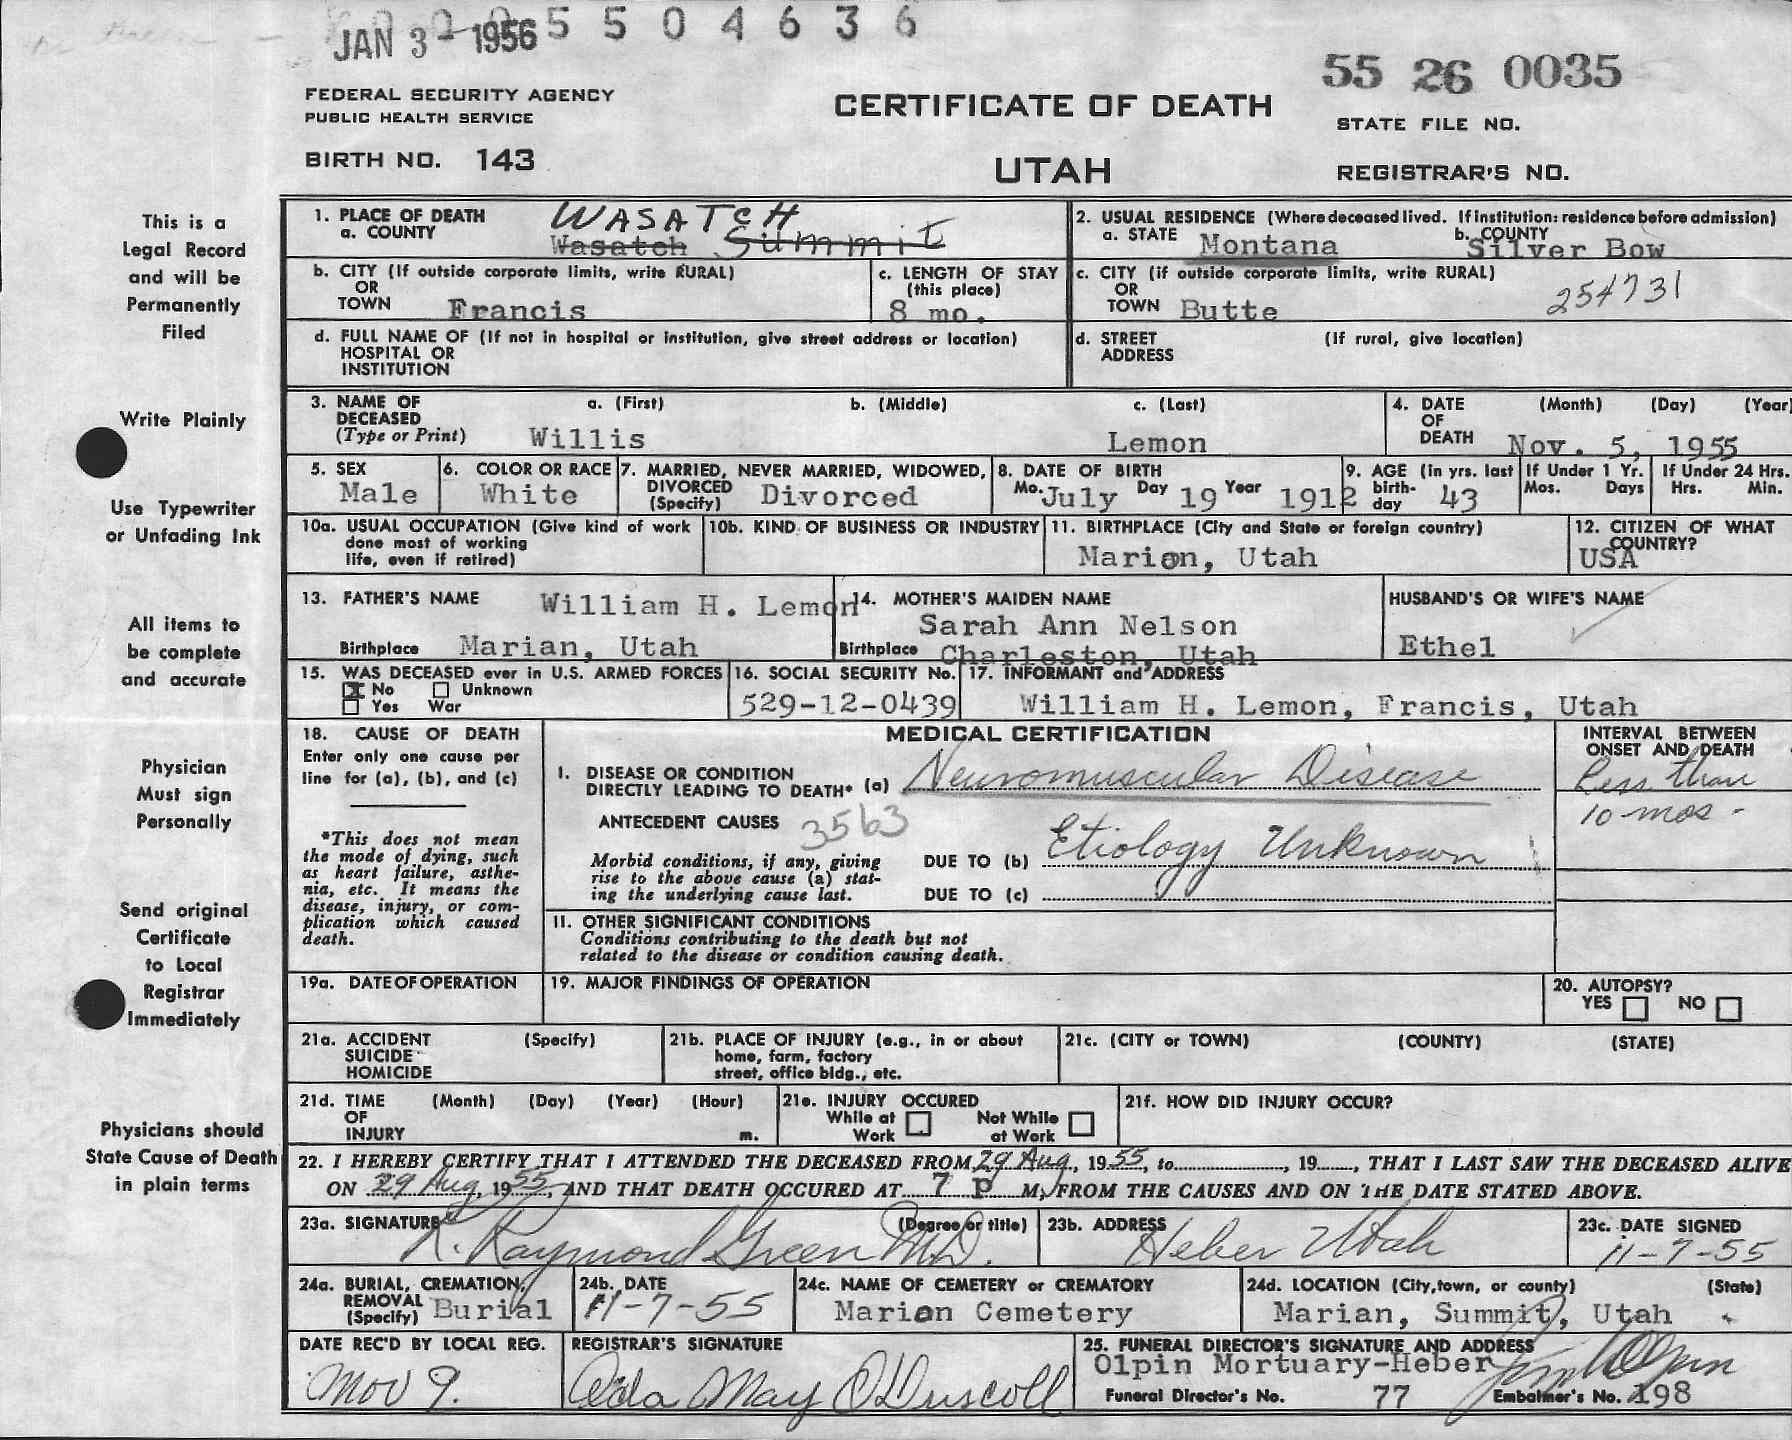 JAN 3 - 1956 5 5 0 4 6 3 6
55 26 0035
FEDERAL SECURITY AGENCY
PUBLIC HEALTH SERVICE
CERTIFICATE OF DEATH
STATE FILE NO.
BIRTH NO. 143
UTAH
REGISTRAR'S NO.
This is a
Legal Record
and will be
Permanently
Filed
Write Plainly
Use Typewriter
or Unfading Ink
All items to
be complete
and accurate
Physician
Must sign
Personally
Send original
Certificate
to Local
Registrar
Immediately
Physicians should
State Cause of Death
in plain terms
1. PLACE OF DEATH
a. COUNTY
WASATCH
Wasatch Summit
2. USUAL RESIDENCE (Where deceased lived. If institution: residence before admission)
a. STATE Montana
b. COUNTY Silver Bow
b. CITY (If outside corporate limits, write RURAL)
OR
TOWN Francis
c. LENGTH OF STAY
(this place)
8 mo.
c. CITY (if outside corporate limits, write RURAL)
OR
TOWN Butte
254731
d. FULL NAME OF (If not in hospital or institution, give street address or location)
HOSPITAL OR
INSTITUTION
d. STREET (If rural, give location)
ADDRESS
3. NAME OF
DECEASED
(Type or Print)
a. (First) b. (Middle) c. (Last)
Willis Lemon
4. DATE (Month) (Day) (Year)
OF
DEATH Nov. 5, 1955
5. SEX
Male
6. COLOR OR RACE
White
7. MARRIED, NEVER MARRIED, WIDOWED,
DIVORCED
(Specify) Divorced
8. DATE OF BIRTH
Mo. July Day 19 Year 1912
9. AGE (In yrs. last
birth-
day 43
If Under 1 Yr.
Mos. Days
If Under 24 Hrs.
Hrs. Min.
10a. USUAL OCCUPATION (Give kind of work
done most of working
life, even if retired)
10b. KIND OF BUSINESS OR INDUSTRY
11. BIRTHPLACE (City and State or foreign country)
Marion, Utah
12. CITIZEN OF WHAT
COUNTRY?
USA
13. FATHER'S NAME William H. Lemon
Birthplace Marian, Utah
14. MOTHER'S MAIDEN NAME
Sarah Ann Nelson
Birthplace Charleston, Utah
HUSBAND'S OR WIFE'S NAME
Ethel
15. WAS DECEASED ever in U.S. ARMED FORCES
X No Unknown
Yes War
16. SOCIAL SECURITY No.
529-12-0439
17. INFORMANT and ADDRESS
William H. Lemon, Francis, Utah
18. CAUSE OF DEATH
Enter only one cause per
line for (a), (b), and (c)
*This does not mean
the mode of dying, such
as heart failure, asthe-
nia, etc. It means the
disease, injury, or com-
plication which caused
death.
MEDICAL CERTIFICATION
I. DISEASE OR CONDITION
DIRECTLY LEADING TO DEATH* (a) Neuromuscular Disease
ANTECEDENT CAUSES 3563
Morbid conditions, if any, giving
rise to the above cause (a) stat-
ing the underlying cause last.
DUE TO (b) Etiology Unknown
DUE TO (c)
II. OTHER SIGNIFICANT CONDITIONS
Conditions contributing to the death but not
related to the disease or condition causing death.
INTERVAL BETWEEN
ONSET AND DEATH
Less than
10 mos -
19a. DATE OF OPERATION
19. MAJOR FINDINGS OF OPERATION
20. AUTOPSY?
YES NO
21a. ACCIDENT (Specify)
SUICIDE
HOMICIDE
21b. PLACE OF INJURY (e.g., in or about
home, farm, factory
street, office bldg., etc.
21c. (CITY or TOWN) (COUNTY) (STATE)
21d. TIME (Month) (Day) (Year) (Hour)
OF
INJURY m.
21e. INJURY OCCURED
While at Not While
Work at Work
21f. HOW DID INJURY OCCUR?
22. I HEREBY CERTIFY THAT I ATTENDED THE DECEASED FROM 29 Aug, 1955, to........, 19......, THAT I LAST SAW THE DECEASED ALIVE
ON 29 Aug, 1955, AND THAT DEATH OCCURED AT 7 P M, FROM THE CAUSES AND ON THE DATE STATED ABOVE.
23a. SIGNATURE (Degree or title)
R. Raymond Green M.D.
23b. ADDRESS
Heber Utah
23c. DATE SIGNED
11-7-55
24a. BURIAL, CREMATION,
REMOVAL
(Specify) Burial
24b. DATE
11-7-55
24c. NAME OF CEMETERY or CREMATORY
Marion Cemetery
24d. LOCATION (City, town, or county) (State)
Marian, Summit, Utah
DATE REC'D BY LOCAL REG.
Nov 9.
REGISTRAR'S SIGNATURE
Ada May O'Driscoll
25. FUNERAL DIRECTOR'S SIGNATURE AND ADDRESS
Olpin Mortuary-Heber
Funeral Director's No. 77 Embalmer's No. 198